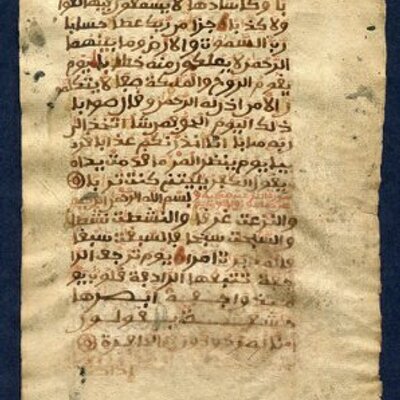 با وكاسا دهاقا لا يسمعون فيها لغوا
ولا كذبا جزا من ربك عطا حسابا
رب السموت والارض وما بينهما
الرحمن لا يملكون منه خطابا يوم
يقوم الروح والمليكة صفا لا يتكلمو
ن الا من اذن له الرحمن وقال صوابا
ذلك اليوم الحق فمن شا اتخذ الى
ربه مابا انا انذرنكم عذابا قر
يبا يوم ينظر المر ما قدمت يداه
ويقول الكفر يليتني كنت تربا
بسم الله الرحمن الرحيم
والنزعت غرقا والنشطت نشطا
والسبحت سبحا فالسبقت سبقا
فالمدبرت امرا يوم ترجف الرا
جفة تتبعها الرادفة قلوب يو
ميذ واجفة ابصرها
خشعة يقولون
انا لمردودون في الحافرة